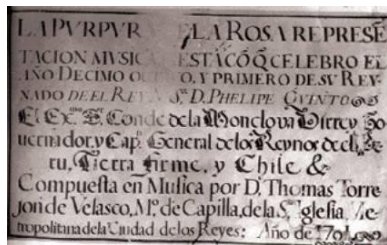 LA PVRPVR LA ROSA REPRESẼ
TACION MVSIC ESTA CÕ Q̃ CELEBRO EL
AÑO DECIMO OC O, Y PRIMERO DE SV REY
NADO DE EL REY Sʳ. D. PHELIPE QVINTO
El Exᵐᵒ. Sʳ. Conde de la Monclova Virrey Go
uernador, y Capⁿ. General de los Reynos de el Pe
ru, Tierra firme, y Chile &
Compuesta en Musica por D. Thomas Torre
jon de Velasco, Mº. de Capilla, de la Sᵗᵃ Iglesia Me
tropolitana de la Ciudad de los Reyes: Año de 1701